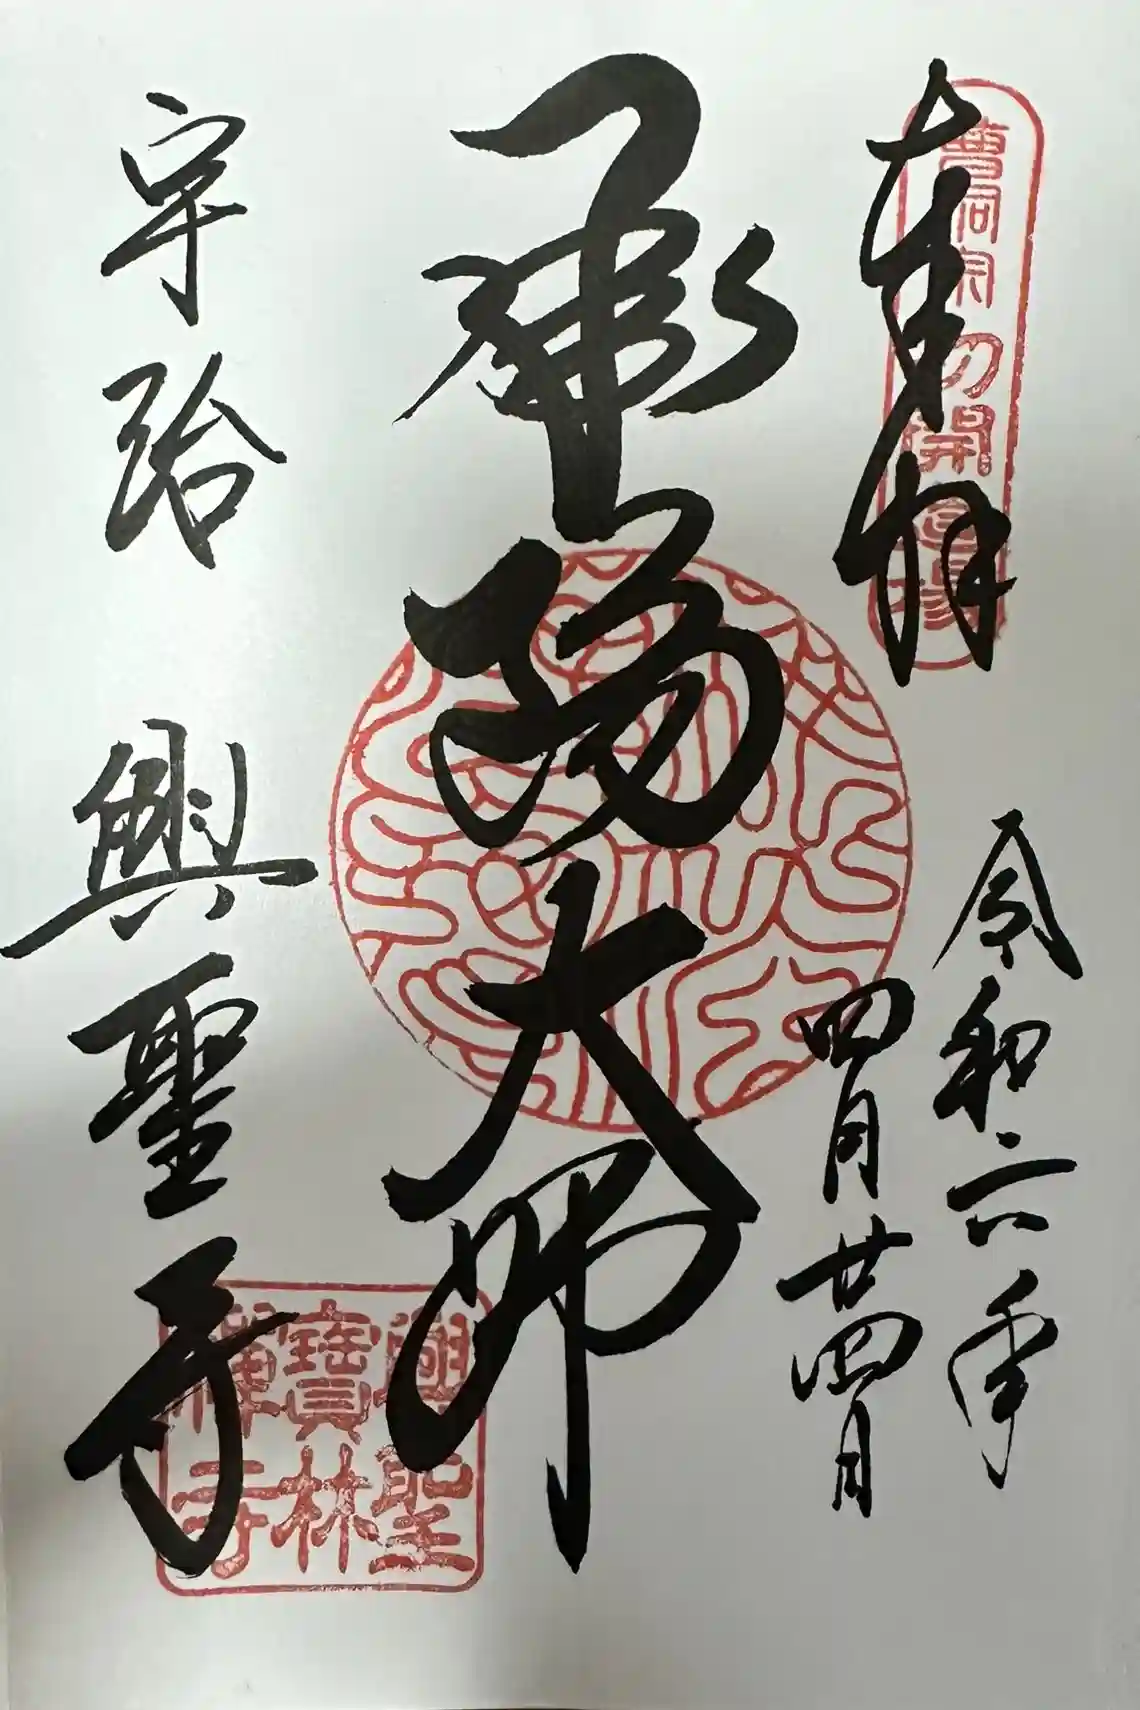 奉拝
曹洞宗初開道場
令和六年
四月廿四日
承陽大師
宇治 興聖寺
興聖
寶林
禅寺